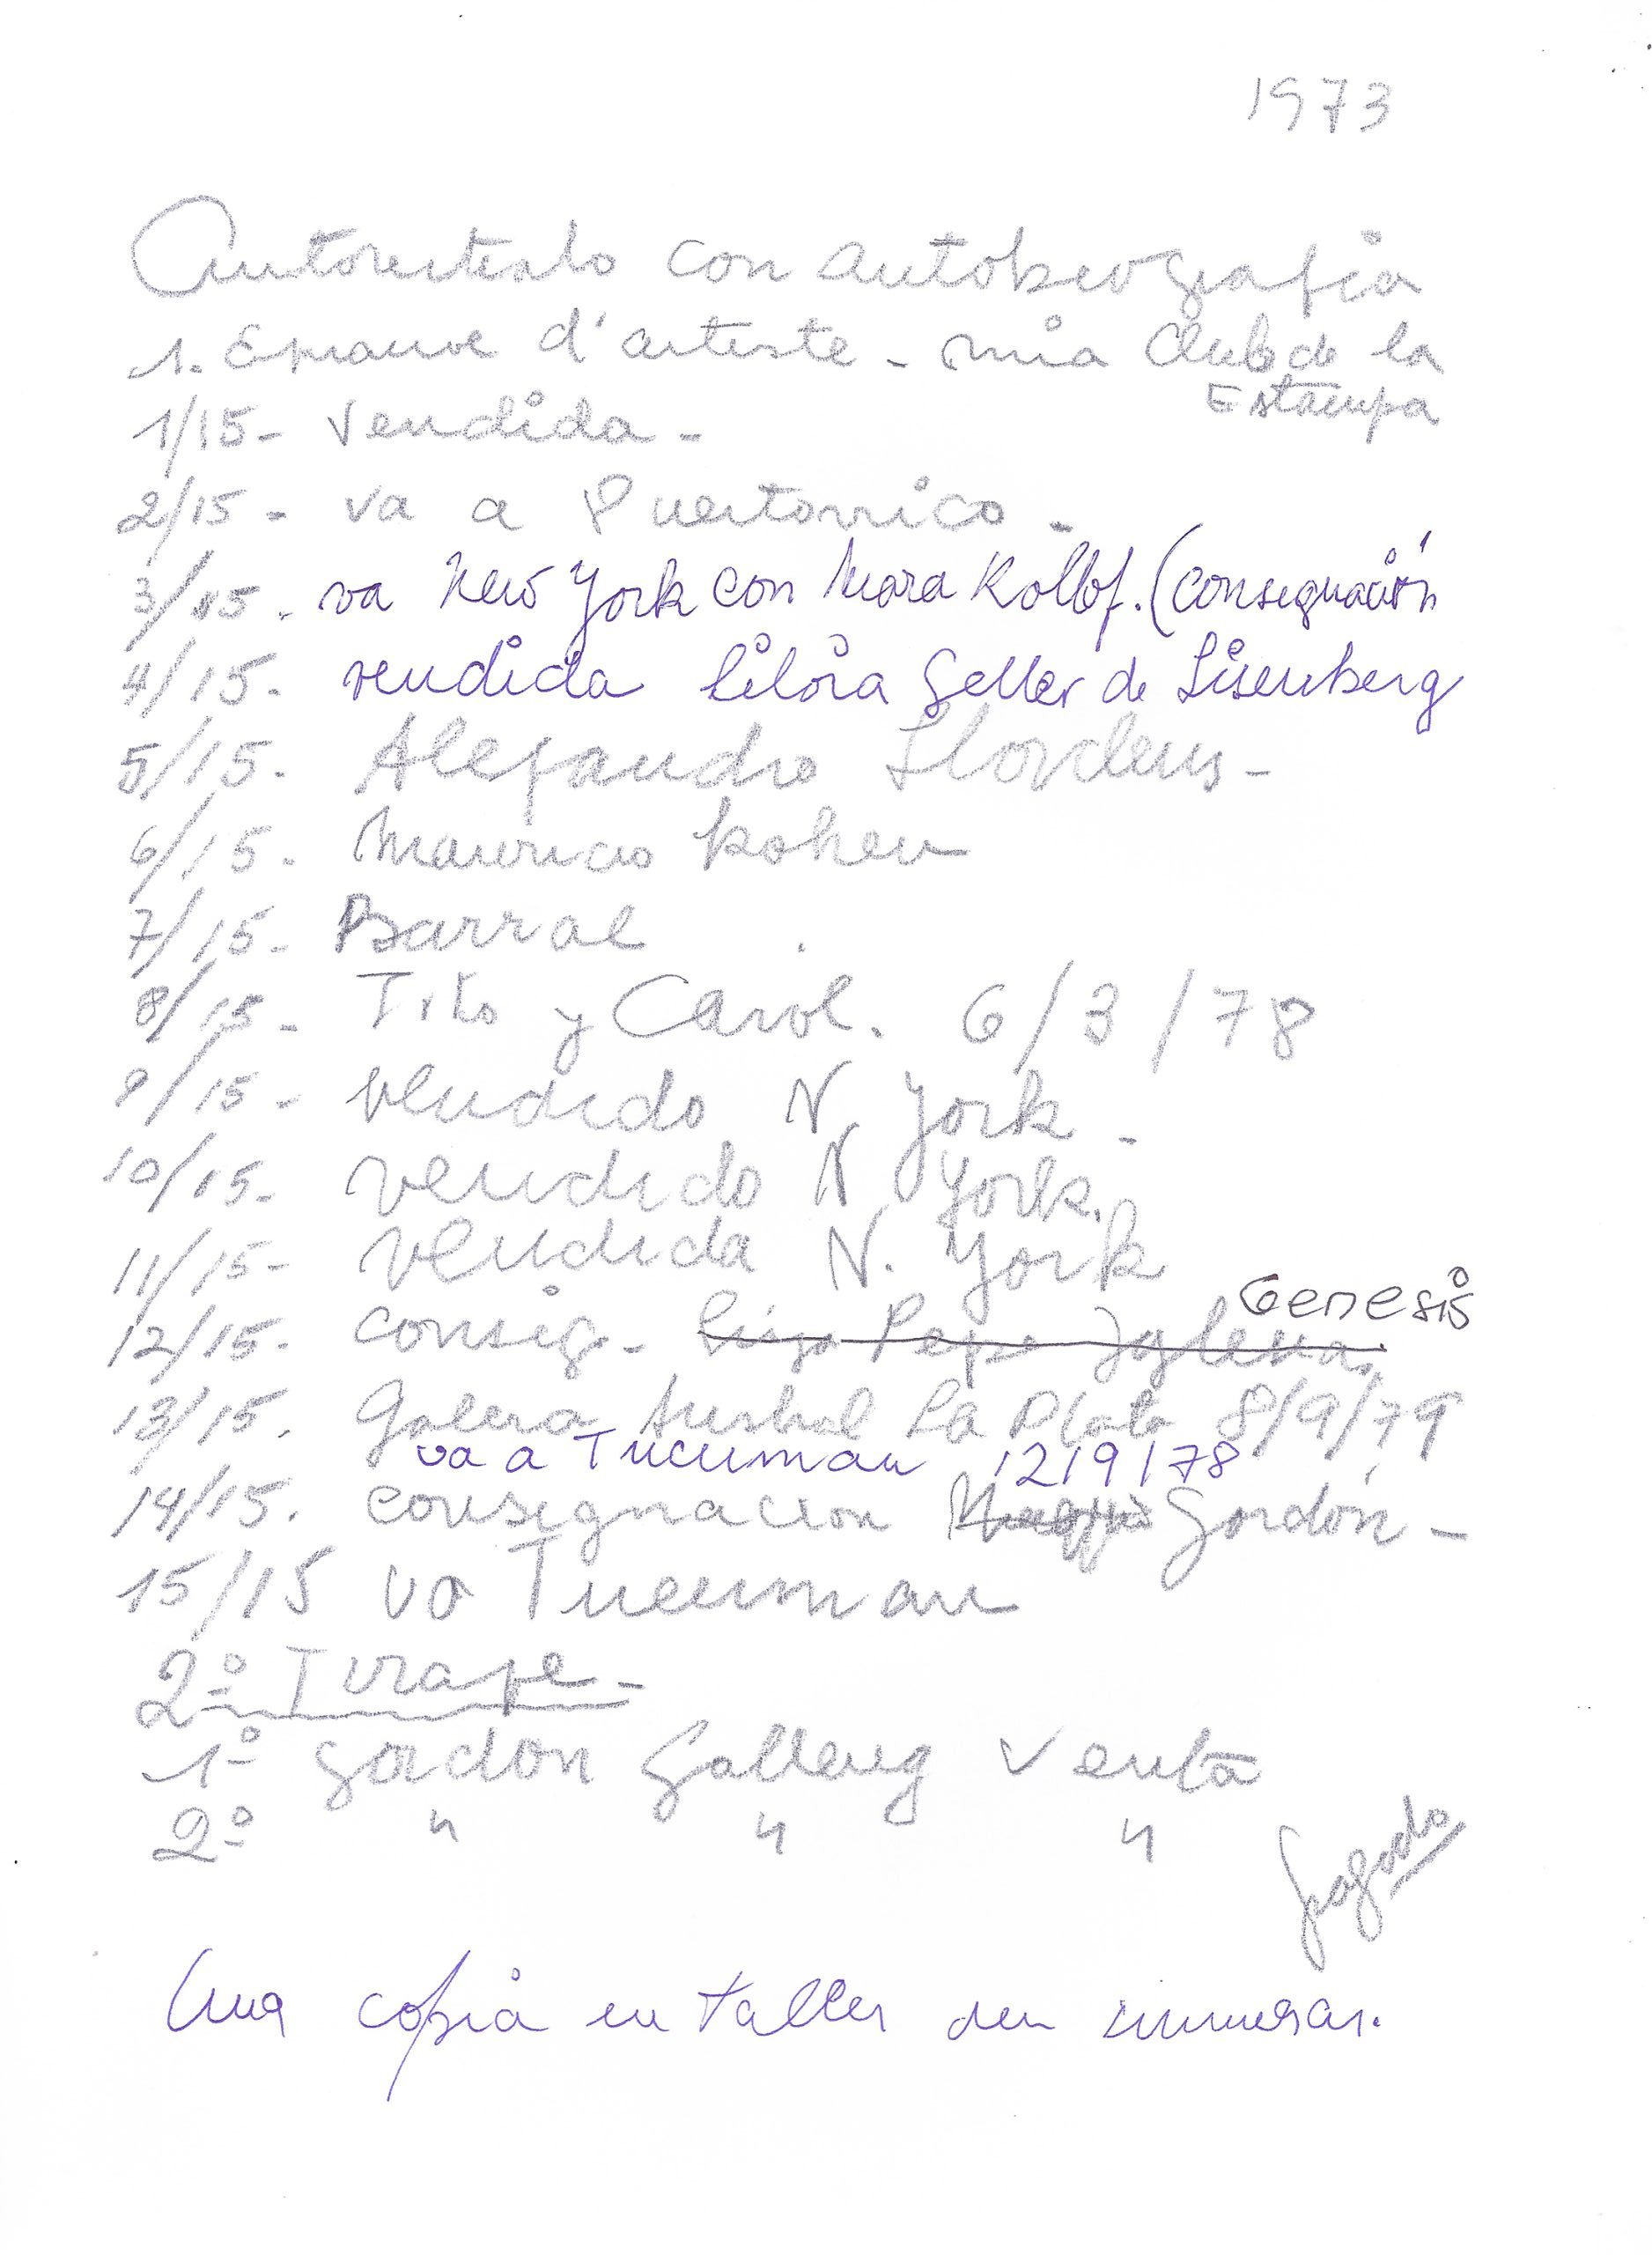 1973
Autorretrato con autobiografia
1. Epreuve d'artiste - mia Club de la
Estampa
1/15- Vendida -
2/15 - va a Puertorrico -
3/15 - va New York con Mara Kolbf. (consignación
4/15 - vendida Liloia Geller de Lisenberg
5/15 - Alejandro Llordens -
6/15 - Mauricio Kohen
7/15 - Barral
8/15 - Tito y Carol. 6/3/78
9/15 - vendido N York -
10/15 - vendido N York.
11/15 - vendida N. York
Genesis
12/15 - consig - Pepe Iglesia
13/15. Galeria Austral La Plata 8/9/79
va a Tucuman 12/9/78
14/15. consignacion Gordon -
15/15 va Tucuman
2º Tiraje -
1º Gordon Gallery Venta
2º " " "
pagado
Una copia en taller sin numerar.